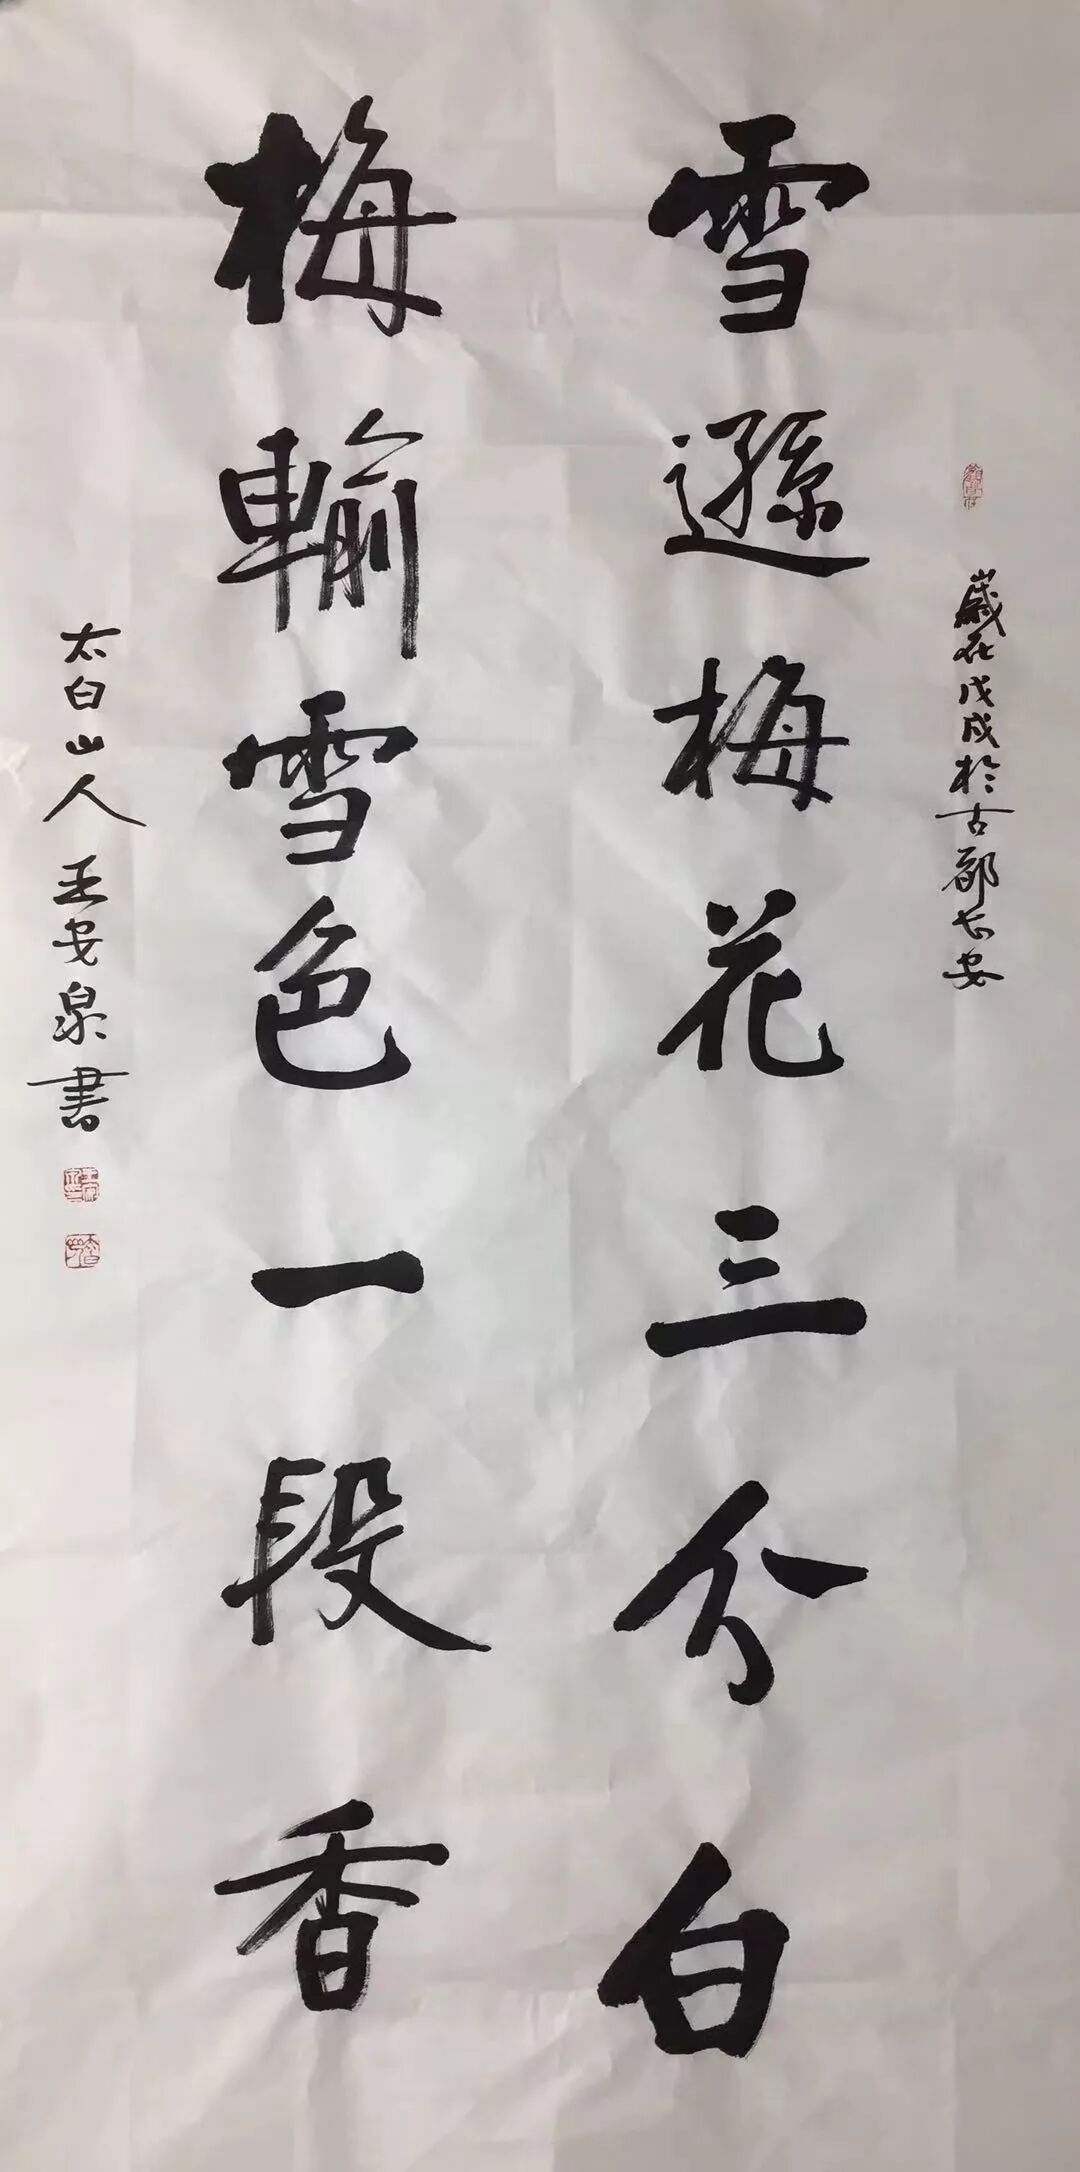 歲在戊戌於古都长安
雪遜梅花三分白
梅輸雪色一段香
太白山人王安泉書